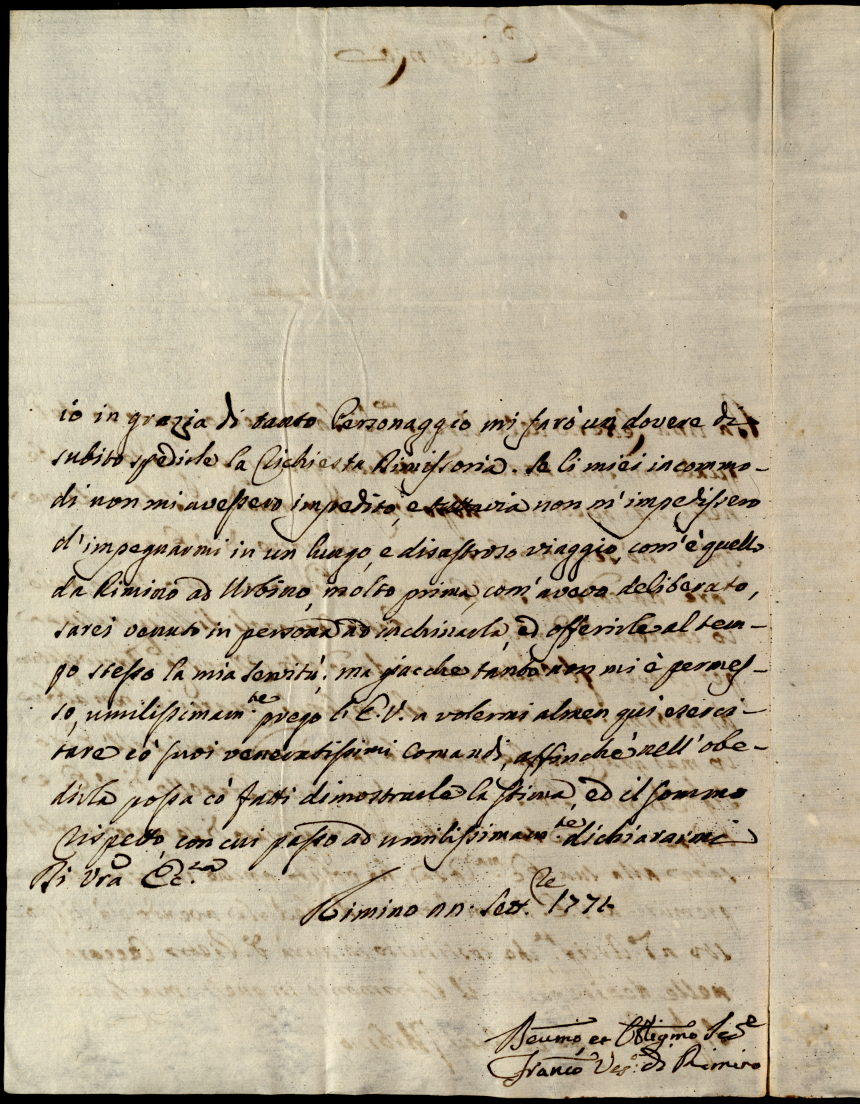 io in grazia di tanto Personaggio mi farò un dovere di
subito spedirle la richiesta Rimissoria. Se li miei incommo-
di non mi avessero impedito, e tuttavia non m'impedissero
d'impegnarmi in un lungo, e disastroso viaggio, com'è quello
da Rimino ad Urbino, molto prima, com'aveva deliberato,
sarei venuto in persona ad inchinarla, ed offerirle al tem-
po stesso la mia servitù: ma giacche tanto non mi è permes-
so, umilissimam.te prego l'E.V. a volermi almen qui eserci-
tare co' suoi veneratissimi comandi, affinchè nell'obe-
dirla possa co' fatti dimostrarle la stima, ed il sommo
rispetto, con cui passo ad umilissimam.te dichiararmi
Di Vrã Ecc.za
Rimino Sett.re 177
Devmo, et Obligmo
Franco Ves.o di Rimino